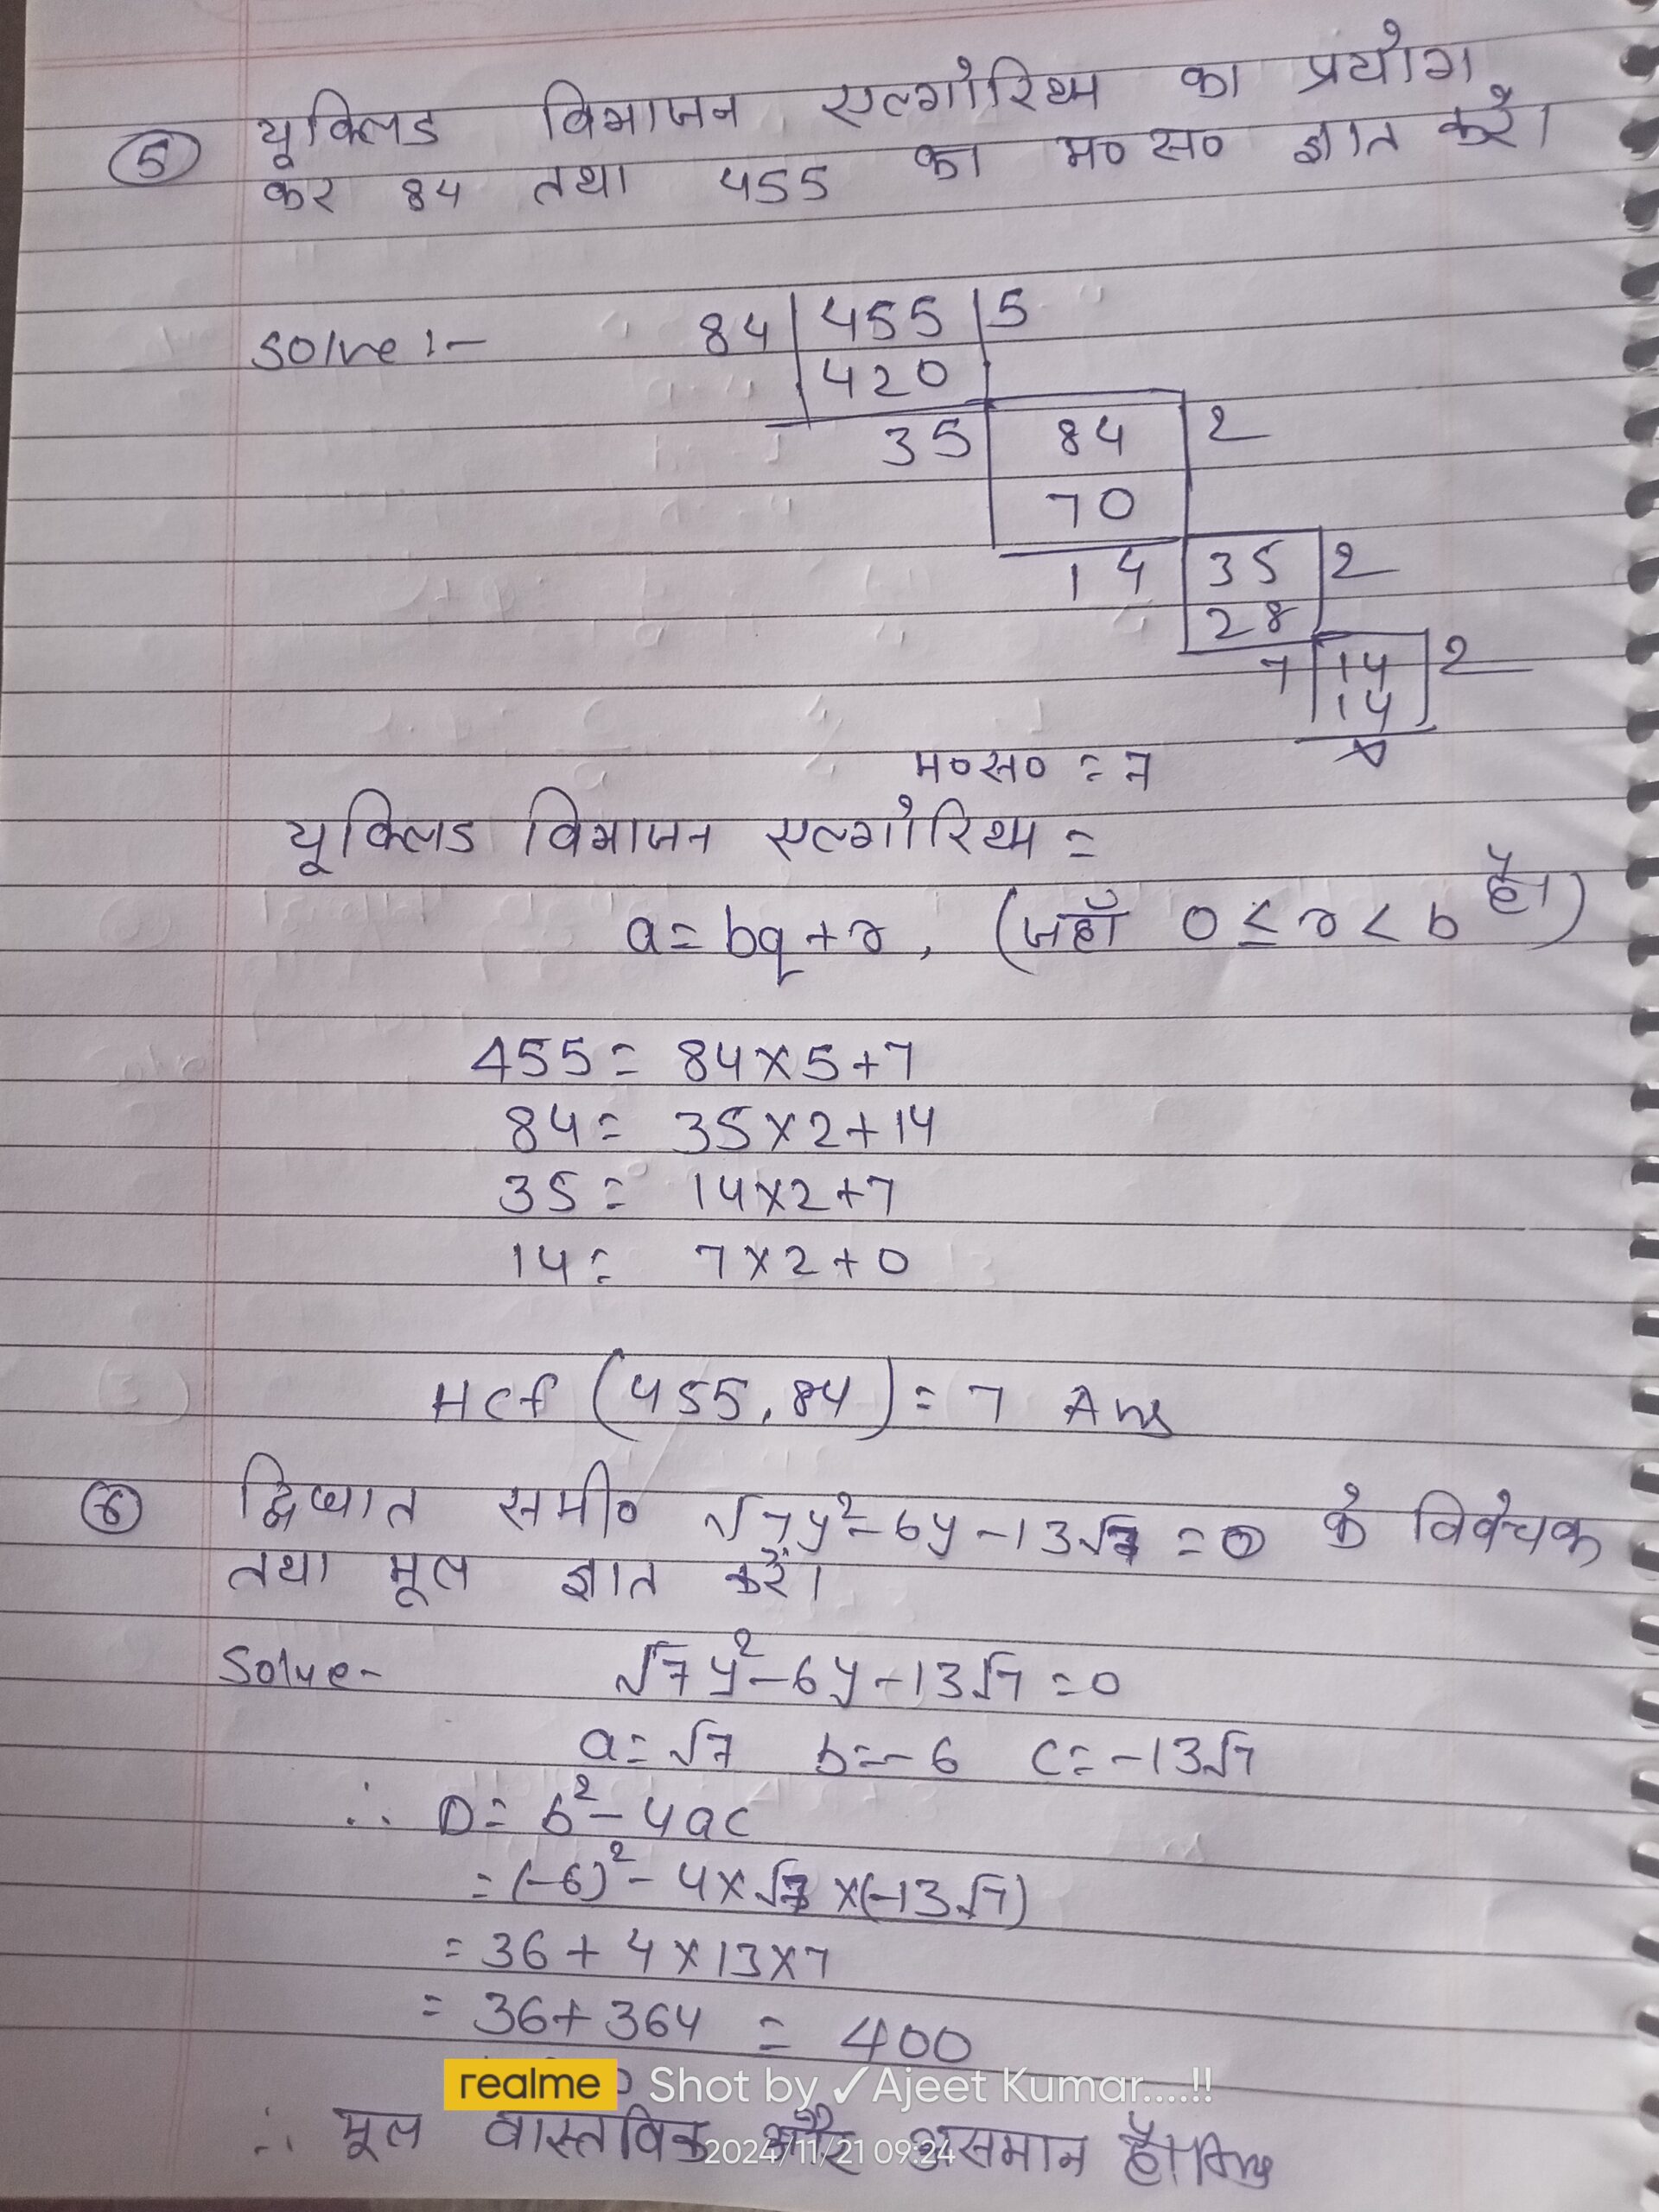 ⑤ यूक्लिड विभाजन एल्गोरिथ्म का प्रयोग
कर 84 तथा 455 का म० स० ज्ञात करें।
Solve :-
84 | 455 | 5
420
35 | 84 | 2
70
14 | 35 | 2
28
7 | 14 | 2
14
×
म०स० = 7
यूक्लिड विभाजन एल्गोरिथ्म =
a = bq + r, (जहाँ 0 ≤ r < b है।)
455 = 84×5+7
84 = 35×2+14
35 = 14×2+7
14 = 7×2+0
Hcf (455, 84) = 7 Ans
⑥ द्विघात समी० √7y²-6y-13√7 = 0 के विवेचक
तथा मूल ज्ञात करें।
Solve-
√7y²-6y-13√7 = 0
a = √7 b = -6 c = -13√7
∴ D = b²-4ac
= (-6)² - 4×√7×(-13√7)
= 36 + 4×13×7
= 36+364 = 400
realme Shot by ✓Ajeet Kumar....!!
∴ मूल वास्तविक और असमान है। Ans
2024/11/21 09:24